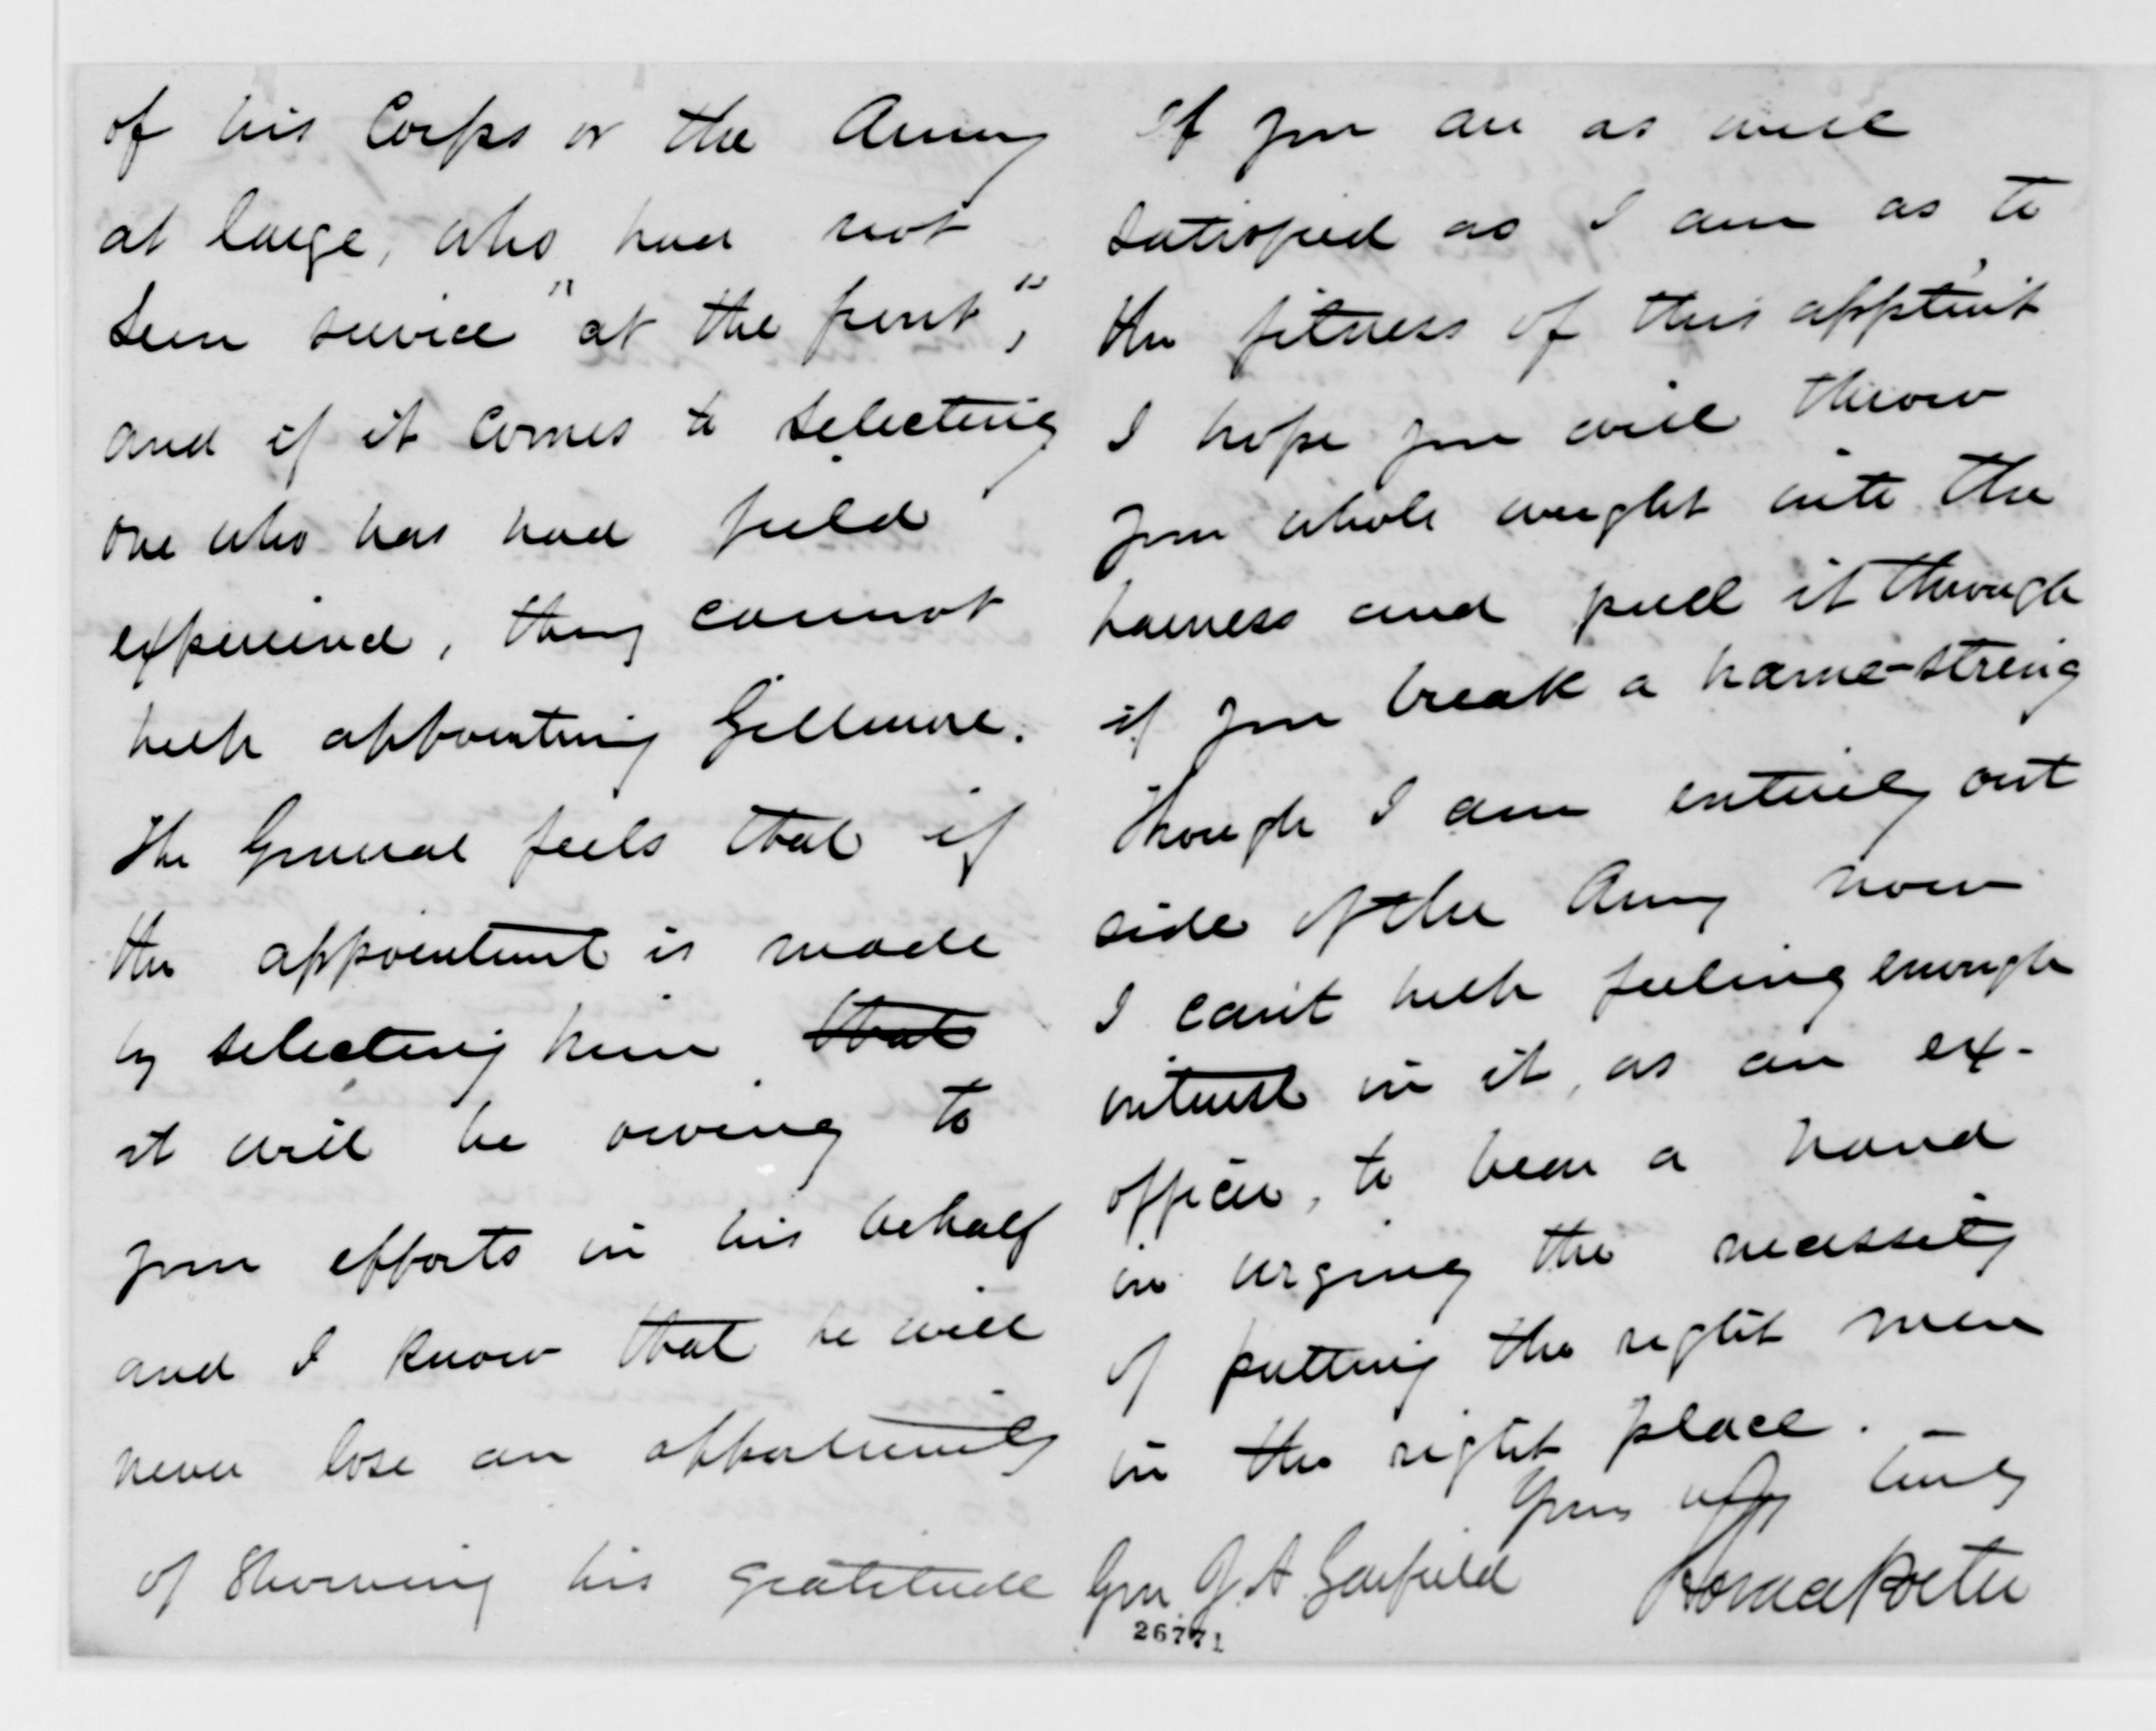 of his Corps or the Army
at large, who had not
seen service "at the front",
and if it comes to selecting
one who has had field
experience, they cannot
help appointing Gillmore.
The General feels that if
the appointment is made
by selecting him that
it will be owing to
your efforts in his behalf
and I know that he will
never lose an opportunity
of showing his gratitude
If you are as well
satisfied as I am as to
the fitness of this apptmt
I hope you will throw
your whole weight into the
harness and pull it through
if you break a hame-string
Though I am entirely out
side of the Army now
I can't help feeling enough
interest in it, as an ex-
officer, to bear a hand
in urging the necessity
of putting the right men
in the right place. –
Yours very truly
Horace Porter
Gen J. A Garfield
26771